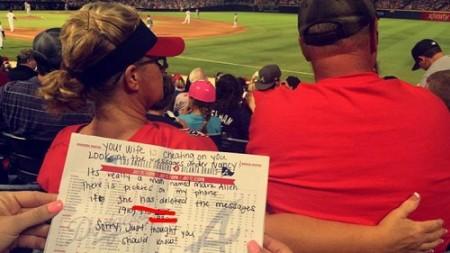 your wife is cheating on you
Look at the messages under Nancy
Its really a man named Mark Allen
There is pictures on my phone
if she has deleted the messages
Sorry, Just thought you
should know!